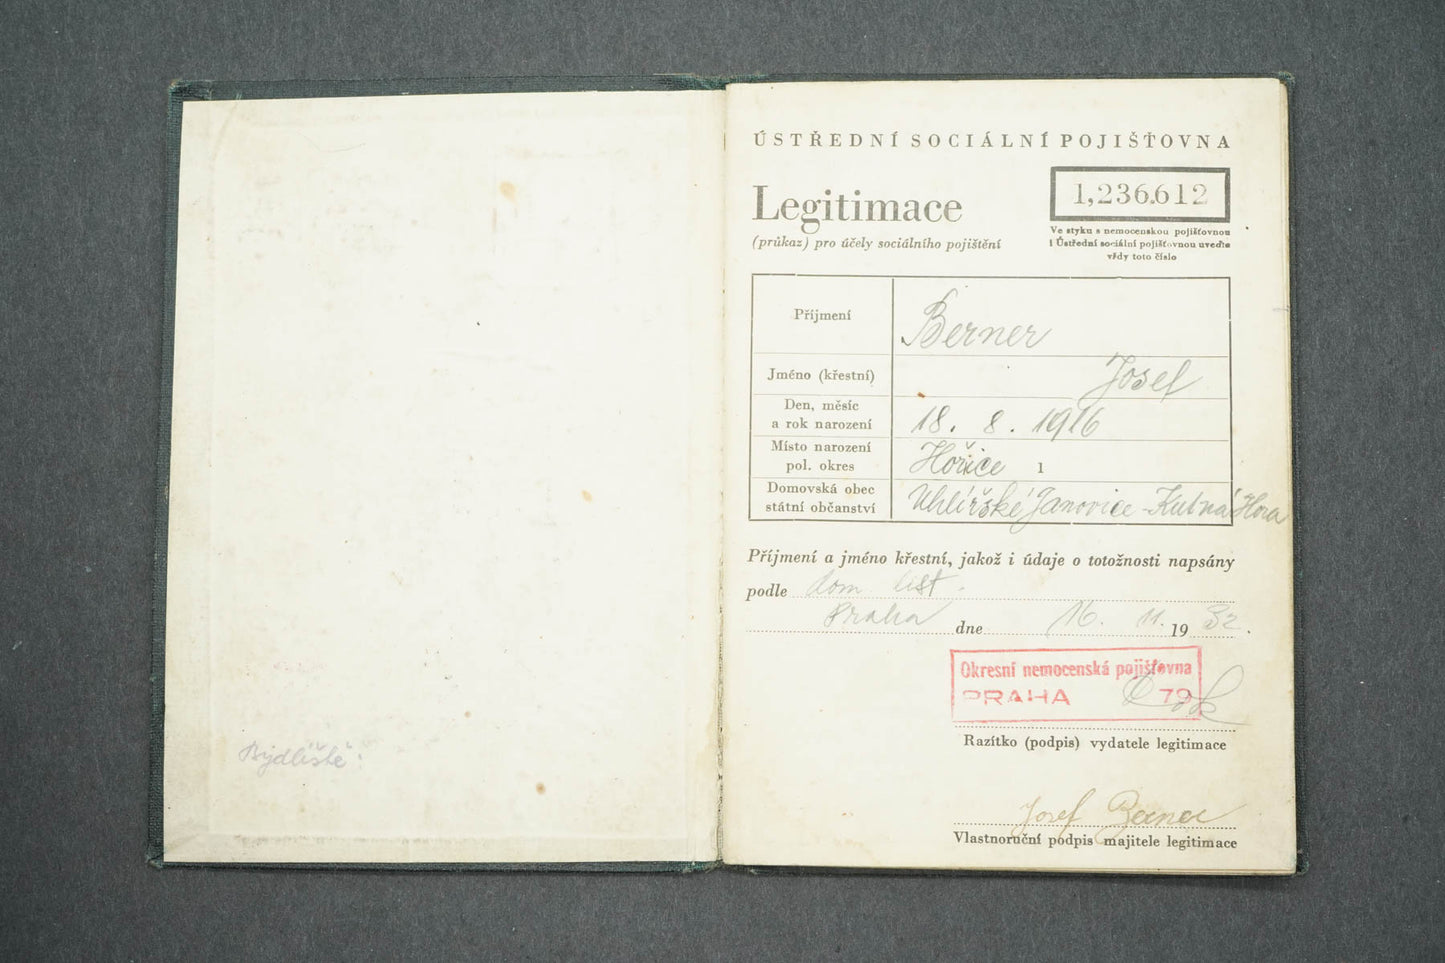 Bydliště:
ÚSTŘEDNÍ SOCIÁLNÍ POJIŠŤOVNA
Legitimace
(průkaz) pro účely sociálního pojištění
1,236.612
Ve styku s nemocenskou pojišťovnou
i Ústřední sociální pojišťovnou uveďte
vždy toto číslo
Příjmení Berner
Jméno (křestní) Josef
Den, měsíc
a rok narození 18. 8. 1916
Místo narození
pol. okres Hořice 1
Domovská obec
státní občanství Uhlířské Janovice - Kutná Hora
Příjmení a jméno křestní, jakož i údaje o totožnosti napsány
podle dom list.
Praha dne 16. 11. 1932.
Okresní nemocenská pojišťovna
PRAHA 79
Razítko (podpis) vydatele legitimace
Josef Berner
Vlastnoruční podpis majitele legitimace